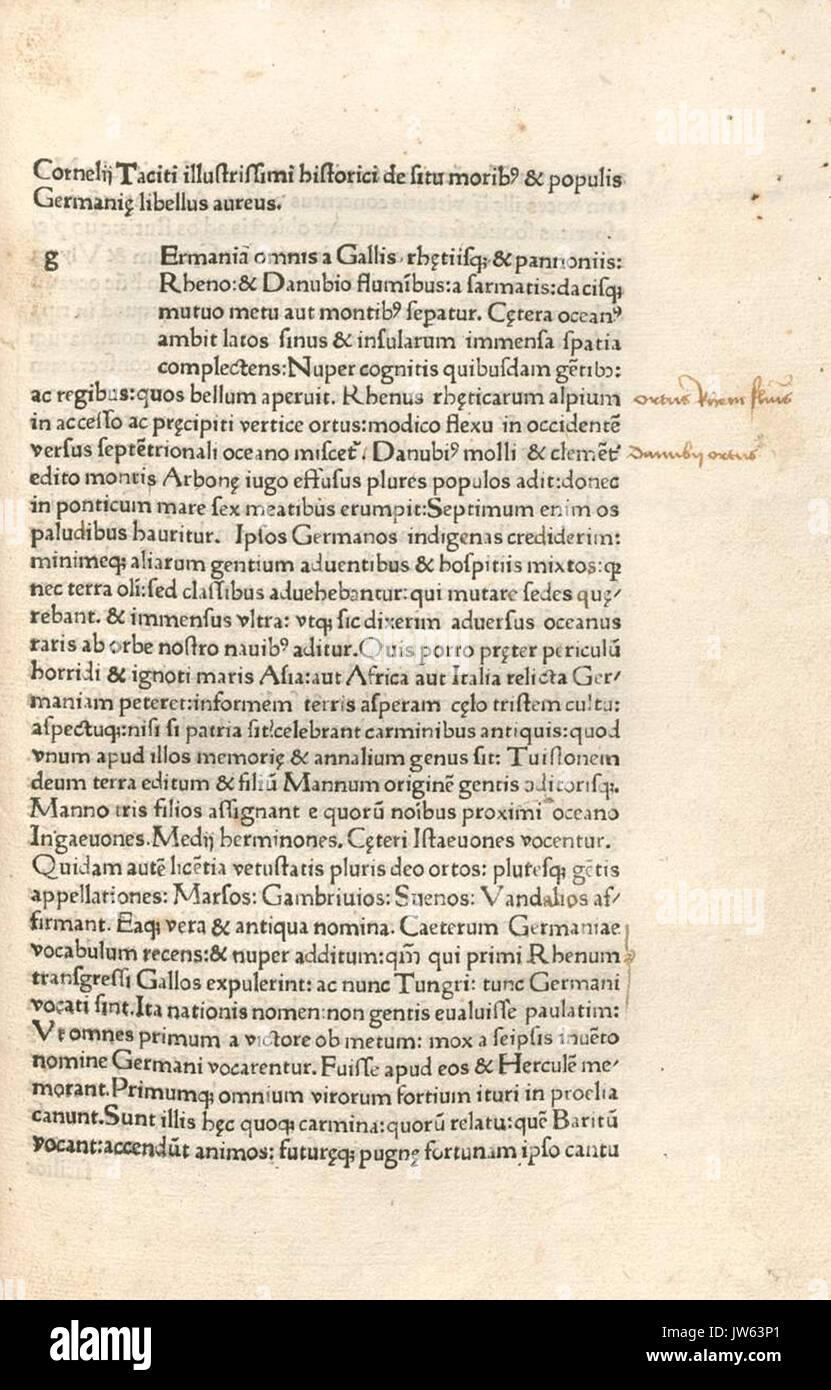 Cornelij Taciti illustrissimi historici de situ moribꝰ & populis
Germanię libellus aureus.
g Ermania omnis a Gallis rhętiisqꝫ & pannoniis:
Rheno: & Danubio fluminibus: a sarmatis: dacisqꝫ
mutuo metu aut montibꝰ sepatur. Cętera oceanꝰ
ambit latos sinus & insularum immensa spatia
complectens: Nuper cognitis quibusdam gẽtibꝰ:
ac regibus: quos bellum aperuit. Rhenus rhęticarum alpium
ortus Rheni fluuius
in accesso ac pręcipiti vertice ortus: modico flexu in occidentẽ
versus septẽtrionali oceano miscetᷣ. Danubiꝰ molli & clemẽt
Danubij ortus
edito montis Arbonę iugo effusus plures populos adit: donec
in ponticum mare sex meatibus erumpit: Septimum enim os
paludibus hauritur. Ipsos Germanos indigenas crediderim:
minimeqꝫ aliarum gentium aduentibus & hospitiis mixtos: qꝛ
nec terra oli: sed classibus aduehebantur: qui mutare sedes quę⸗
rebant. & immensus vltra: vtqꝫ sic dixerim aduersus oceanus
raris ab orbe nostro nauibꝰ aditur. Quis porro pręter periculũ
horridi & ignoti maris Asia: aut Africa aut Italia relicta Ger⸗
maniam peteret: informem terris asperam cęlo tristem cultu:
aspectuqꝫ: nisi si patria sit! celebrant carminibus antiquis: quod
vnum apud illos memorię & annalium genus sit: Tuistonem
deum terra editum & filiũ Mannum originẽ gentis oditorisqꝫ.
Manno tris filios assignant e quorũ noibus proximi oceano
Ingaeuones. Medij herminones. Cęteri Istaeuones vocentur.
Quidam autẽ licẽtia vetustatis pluris deo ortos: pluresqꝫ gẽtis
appellationes: Marsos: Gambriuios: Sueuos: Vandalios af⸗
firmant. Eaqꝫ vera & antiqua nomina. Caeterum Germaniae
vocabulum recens: & nuper additum: qm̃ qui primi Rhenum
transgressi Gallos expulerint: ac nunc Tungri: tunc Germani
vocati sint. Ita nationis nomen: non gentis eualuisse paulatim:
Vt omnes primum a victore ob metum: mox a seipsis inuẽto
nomine Germani vocarentur. Fuisse apud eos & Herculẽ me⸗
morant. Primumqꝫ omnium virorum fortium ituri in proelia
canunt. Sunt illis hęc quoqꝫ carmina: quorũ relatu: quẽ Baritũ
vocant: accendũt animos: futuręqꝫ pugnę fortunam ipso cantu
alamy
alamy
alamy
alamy
Image ID: JW63P1
www.alamy.com